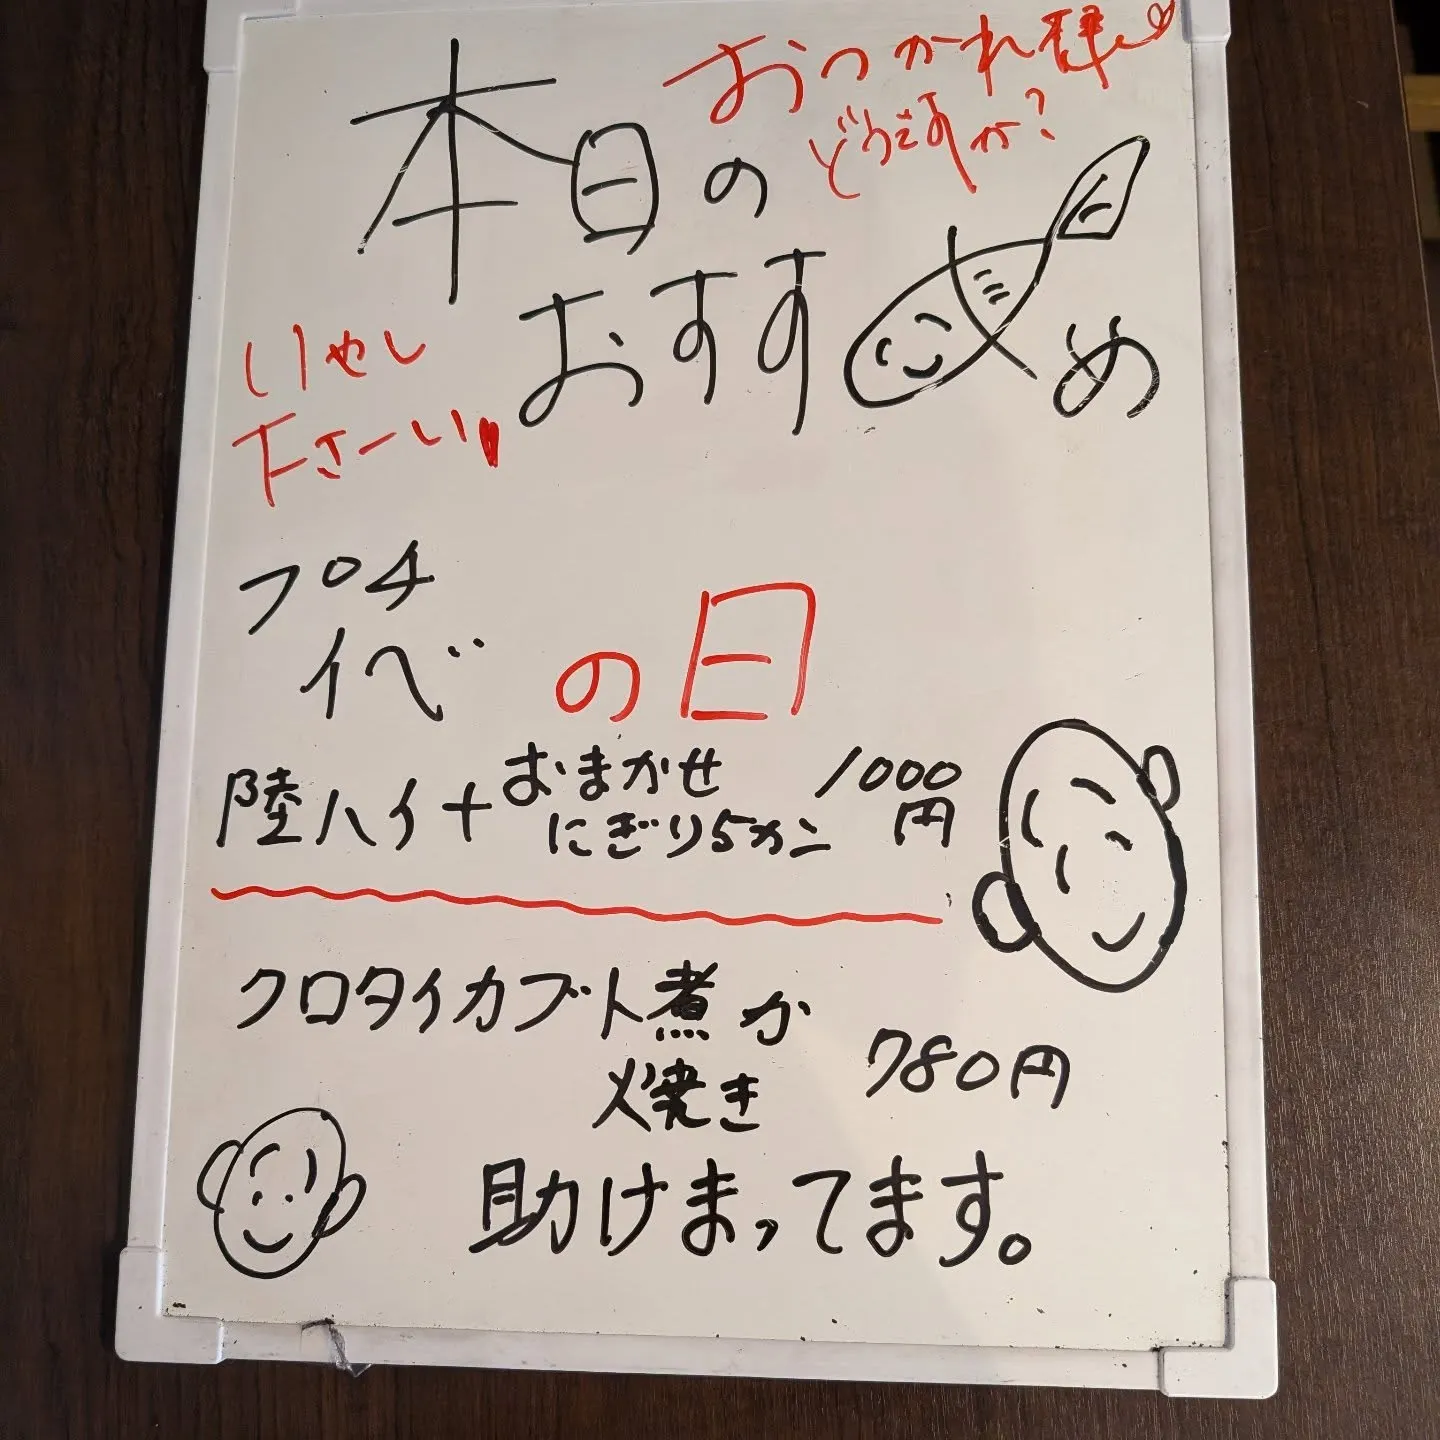 おつかれ様
どうですか?
本日の
おすすめ
いやし
下さーい
プチ
イベ
の日
陸ハイ+おまかせ
にぎり5カン
1000
円
クロダイカブト煮か
焼き
780円
助けまってます。